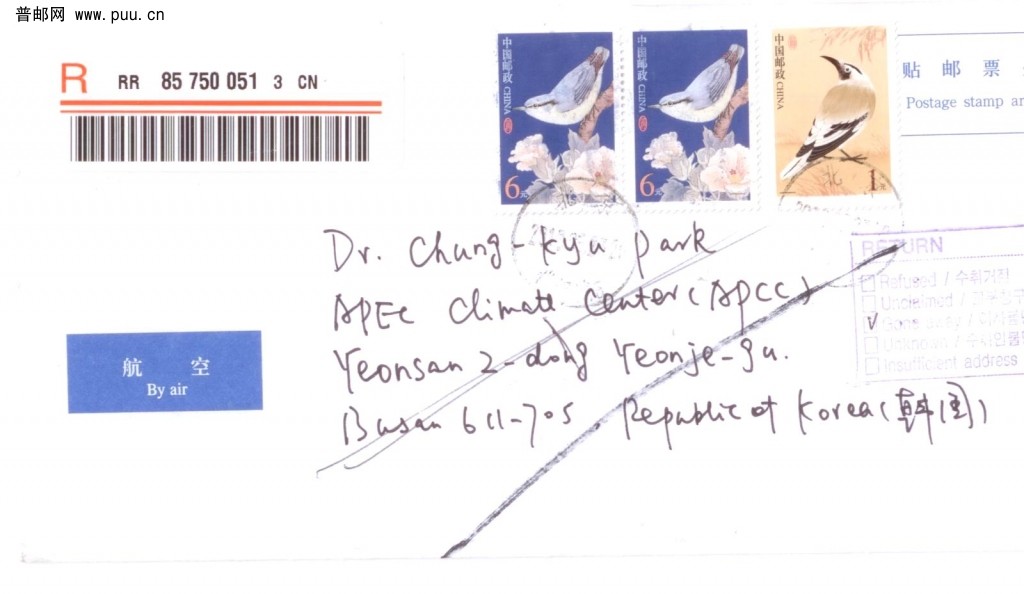 普邮网 www.puu.cn
R RR 85 750 051 3 CN
中国邮政 CHINA
6元
中国邮政 CHINA
6元
中国邮政 CHINA
1元
贴 邮 票
Postage stamp
北
Dr. Chung-Kyu Park
APEC Climate Center (APCC)
Yeonsan 2-dong Yeonje-gu.
Busan 611-705, Republic of Korea (韩国)
RETURN
Refused / 수취거절
Unclaimed /
Gone away /
Unknown /
Insufficient address
航 空
By air